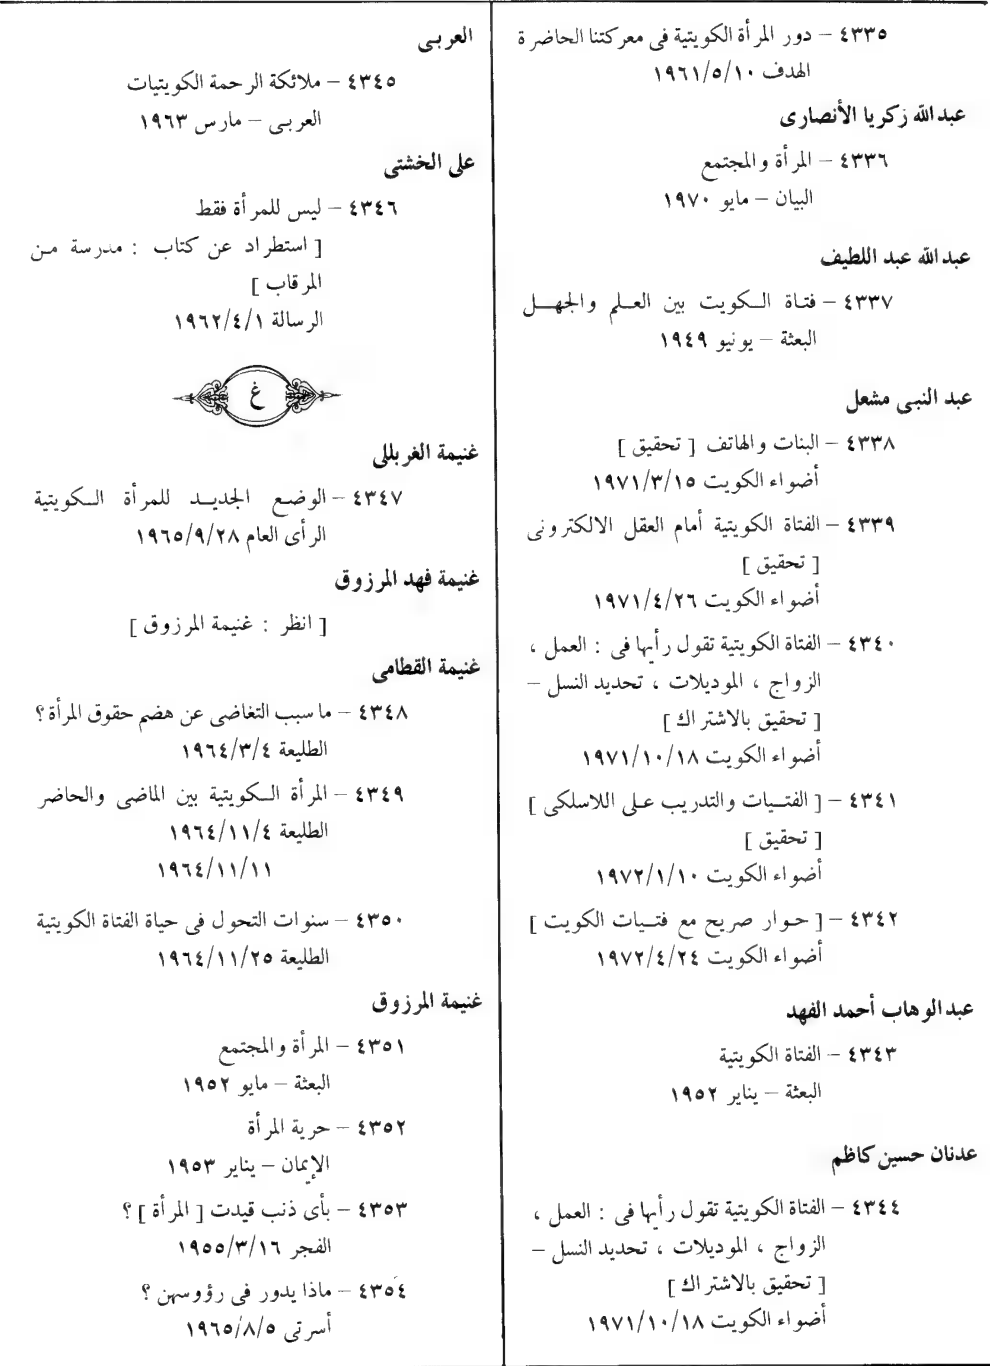 ٤٣٣٥ – دور المرأة الكويتية فى معركتنا الحاضرة
الهدف ١٩٦١/٥/١٠
عبدالله زكريا الأنصارى
٤٣٣٦ – المرأة والمجتمع
البيان – مايو ١٩٧٠
عبدالله عبد اللطيف
٤٣٣٧ – فتاة الكويت بين العلم والجهل
البعثة – يونيو ١٩٤٩
عبد النبى مشعل
٤٣٣٨ – البنات والهاتف [ تحقيق ]
أضواء الكويت ١٩٧١/٣/١٥
٤٣٣٩ – الفتاة الكويتية أمام العقل الالكترونى
[ تحقيق ]
أضواء الكويت ١٩٧١/٤/٢٦
٤٣٤٠ – الفتاة الكويتية تقول رأيها فى : العمل ،
الزواج ، الموديلات ، تحديد النسل –
[ تحقيق بالاشتراك ]
أضواء الكويت ١٩٧١/١٠/١٨
٤٣٤١ – [ الفتيات والتدريب على اللاسلكى ]
[ تحقيق ]
أضواء الكويت ١٩٧٢/١/١٠
٤٣٤٢ – [ حوار صريح مع فتيات الكويت ]
أضواء الكويت ١٩٧٢/٤/٢٤
عبدالوهاب أحمد الفهد
٤٣٤٣ – الفتاة الكويتية
البعثة – يناير ١٩٥٢
عدنان حسين كاظم
٤٣٤٤ – الفتاة الكويتية تقول رأيها فى : العمل ،
الزواج ، الموديلات ، تحديد النسل –
[ تحقيق بالاشتراك ]
أضواء الكويت ١٩٧١/١٠/١٨
العربى
٤٣٤٥ – ملائكة الرحمة الكويتيات
العربى – مارس ١٩٦٣
على الخشتى
٤٣٤٦ – ليس للمرأة فقط
[ استطراد عن كتاب : مدرسة من
المرقاب ]
الرسالة ١٩٦٢/٤/١
غ
غنيمة الغربللى
٤٣٤٧ – الوضع الجديد للمرأة الكويتية
الرأى العام ١٩٦٥/٩/٢٨
غنيمة فهد المرزوق
[ انظر : غنيمة المرزوق ]
غنيمة القطامى
٤٣٤٨ – ما سبب التغاضى عن هضم حقوق المرأة ؟
الطليعة ١٩٦٤/٣/٤
٤٣٤٩ – المرأة الكويتية بين الماضى والحاضر
الطليعة ١٩٦٤/١١/٤
١٩٦٤/١١/١١
٤٣٥٠ – سنوات التحول فى حياة الفتاة الكويتية
الطليعة ١٩٦٤/١١/٢٥
غنيمة المرزوق
٤٣٥١ – المرأة والمجتمع
البعثة – مايو ١٩٥٢
٤٣٥٢ – حرية المرأة
الإيمان – يناير ١٩٥٣
٤٣٥٣ – بأى ذنب قيدت [ المرأة ] ؟
الفجر ١٩٥٥/٣/١٦
٤٣٥٤ – ماذا يدور فى رؤوسهن ؟
أسرتى ١٩٦٥/٨/٥